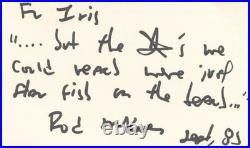 For Iris
".... but the ☆'s we
could reach were just
star fish on the beach..."
Rod
sept,